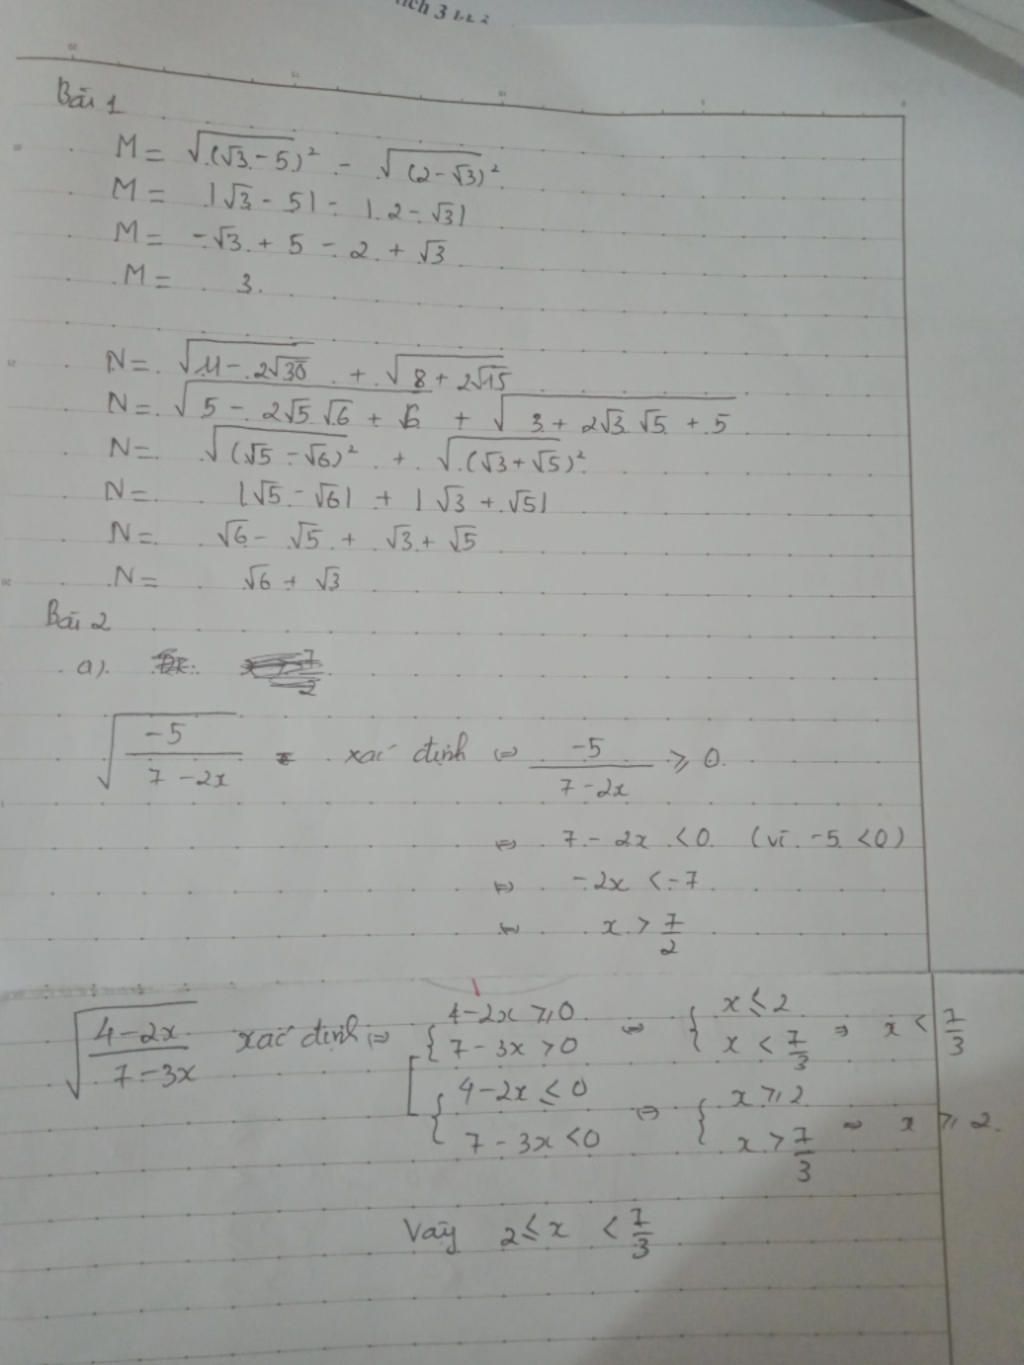 Bài 1
M = √(√3 - 5)² - √(2 - √3)²
M = |√3 - 5| - |2 - √3|
M = -√3 + 5 - 2 + √3
M = 3.
N = √11 - 2√30 + √8 + 2√15
N = √5 - 2√5 √6 + 6 + √3 + 2√3 √5 + 5
N = √(√5 - √6)² + √(√3 + √5)²
N = |√5 - √6| + |√3 + √5|
N = √6 - √5 + √3 + √5
N = √6 + √3
Bài 2
a).
√(-5/(7 - 2x)) xác định ⇔ -5/(7 - 2x) ≥ 0.
⇔ 7 - 2x < 0 (vì -5 < 0)
⇔ -2x < -7
⇔ x > 7/2
√((4 - 2x)/(7 - 3x)) xác định ⇔ [ { 4 - 2x ≥ 0 ⇔ { x ≤ 2
7 - 3x > 0 x < 7/3 ⇒ x < 7/3
{ 4 - 2x ≤ 0 ⇔ { x ≥ 2
7 - 3x < 0 x > 7/3 ⇔ x ≥ 2.
Vậy 2 ≤ x < 7/3